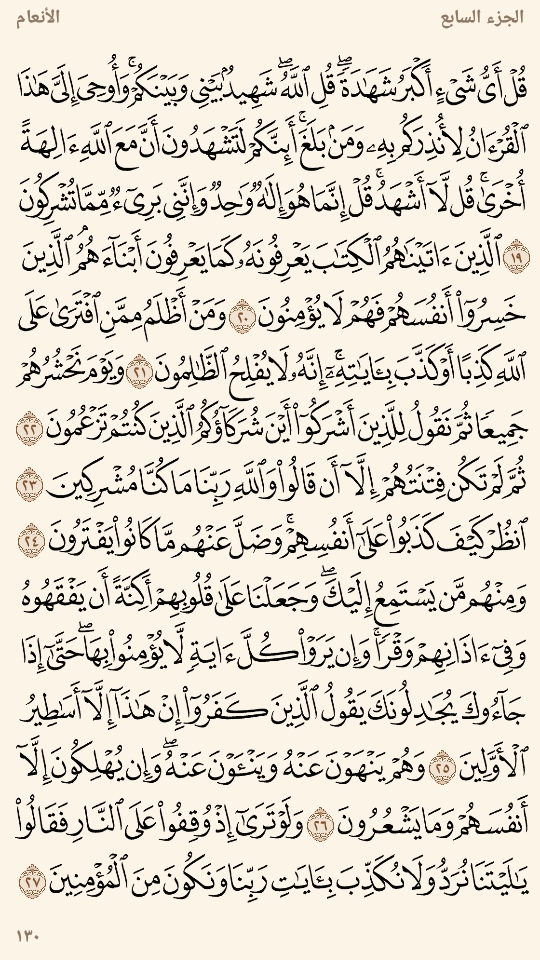 الجزء السابع
الأنعام
قُلْ أَىُّ شَىْءٍ أَكْبَرُ شَهَٰدَةًۖ قُلِ ٱللَّهُۖ شَهِيدُۢ بَيْنِى وَبَيْنَكُمْۚ وَأُوحِىَ إِلَىَّ هَٰذَا
ٱلْقُرْءَانُ لِأُنذِرَكُم بِهِۦ وَمَنۢ بَلَغَۚ أَئِنَّكُمْ لَتَشْهَدُونَ أَنَّ مَعَ ٱللَّهِ ءَالِهَةً
أُخْرَىٰۚ قُل لَّآ أَشْهَدُۚ قُلْ إِنَّمَا هُوَ إِلَٰهٌ وَٰحِدٌ وَإِنَّنِى بَرِىٓءٌ مِّمَّا تُشْرِكُونَ
١٩ ٱلَّذِينَ ءَاتَيْنَٰهُمُ ٱلْكِتَٰبَ يَعْرِفُونَهُۥ كَمَا يَعْرِفُونَ أَبْنَآءَهُمُۘ ٱلَّذِينَ
خَسِرُوٓا۟ أَنفُسَهُمْ فَهُمْ لَا يُؤْمِنُونَ ٢٠ وَمَنْ أَظْلَمُ مِمَّنِ ٱفْتَرَىٰ عَلَى
ٱللَّهِ كَذِبًا أَوْ كَذَّبَ بِـَٔايَٰتِهِۦٓۗ إِنَّهُۥ لَا يُفْلِحُ ٱلظَّٰلِمُونَ ٢١ وَيَوْمَ نَحْشُرُهُمْ
جَمِيعًا ثُمَّ نَقُولُ لِلَّذِينَ أَشْرَكُوٓا۟ أَيْنَ شُرَكَآؤُكُمُ ٱلَّذِينَ كُنتُمْ تَزْعُمُونَ ٢٢
ثُمَّ لَمْ تَكُن فِتْنَتُهُمْ إِلَّآ أَن قَالُوا۟ وَٱللَّهِ رَبِّنَا مَا كُنَّا مُشْرِكِينَ ٢٣
ٱنظُرْ كَيْفَ كَذَبُوا۟ عَلَىٰٓ أَنفُسِهِمْۚ وَضَلَّ عَنْهُم مَّا كَانُوا۟ يَفْتَرُونَ ٢٤
وَمِنْهُم مَّن يَسْتَمِعُ إِلَيْكَۖ وَجَعَلْنَا عَلَىٰ قُلُوبِهِمْ أَكِنَّةً أَن يَفْقَهُوهُ
وَفِىٓ ءَاذَانِهِمْ وَقْرًاۚ وَإِن يَرَوْا۟ كُلَّ ءَايَةٍ لَّا يُؤْمِنُوا۟ بِهَاۖ حَتَّىٰٓ إِذَا
جَآءُوكَ يُجَٰدِلُونَكَ يَقُولُ ٱلَّذِينَ كَفَرُوٓا۟ إِنْ هَٰذَآ إِلَّآ أَسَٰطِيرُ
ٱلْأَوَّلِينَ ٢٥ وَهُمْ يَنْهَوْنَ عَنْهُ وَيَنْـَٔوْنَ عَنْهُۖ وَإِن يُهْلِكُونَ إِلَّآ
أَنفُسَهُمْ وَمَا يَشْعُرُونَ ٢٦ وَلَوْ تَرَىٰٓ إِذْ وُقِفُوا۟ عَلَى ٱلنَّارِ فَقَالُوا۟
يَٰلَيْتَنَا نُرَدُّ وَلَا نُكَذِّبَ بِـَٔايَٰتِ رَبِّنَا وَنَكُونَ مِنَ ٱلْمُؤْمِنِينَ ٢٧
١٣٠